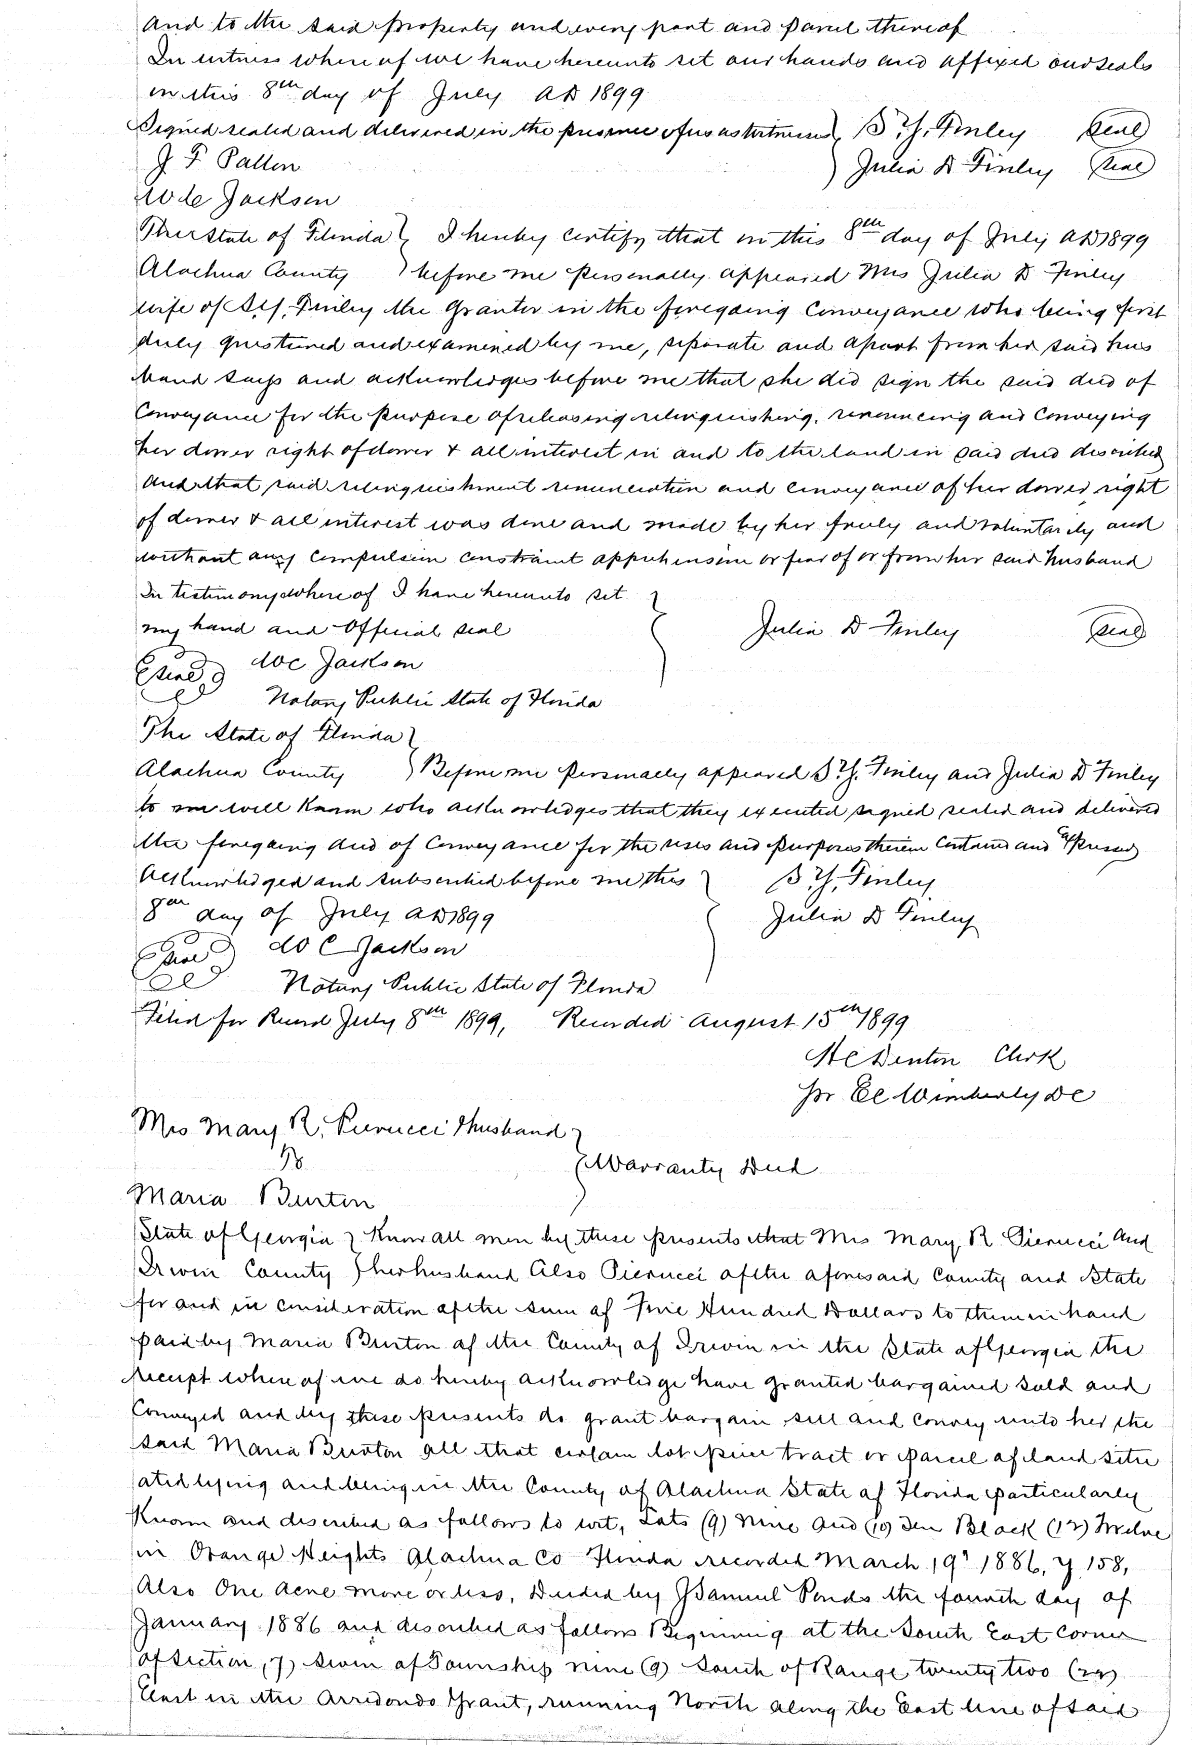 And to the said property and every part and parcel thereof
In witness where of we have hereunto set our hands and affixed our seals
on this 8th day of July AD 1899
Signed sealed and delivered in the presence of us as witnesses } S. Y. Finley (Seal)
J F Patten } Julia D Finley (Seal)
W de Jackson
The State of Florida } I hereby certify that on this 8th day of July AD 1899
Alachua County } before me personally appeared Mrs Julia D Finley
wife of S. Y. Finley the Grantor in the foregoing Conveyance who being first
duly questioned and examined by me, separate and apart from her said hus
band says and acknowledges before me that she did sign the said deed of
Conveyance for the purpose of releasing relinquishing, renouncing and Conveying
her dower right of dower & all interest in and to the land in said deed described
And that said relinquishment renunciation and conveyance of her dower, right
of dower & all interest was done and made by her freely and voluntarily and
without any Compulsion constraint apprehension or fear of or from her said husband
In testimony where of I have hereunto set
my hand and Official seal } Julia D Finley (Seal)
(Seal) W C Jackson
Notary Public State of Florida
The State of Florida }
Alachua County } Before me personally appeared S. Y. Finley and Julia D Finley
to me well known who acknowledges that they executed signed sealed and delivered
the foregoing deed of Conveyance for the uses and purposes therein contained and expressed
Acknowledged and subscribed before me this } S. Y. Finley
8th day of July AD 1899 Julia D Finley
(Seal) W C Jackson
Notary Public State of Florida
Filed for Record July 8th 1899, Recorded August 15th 1899
H C Denton Clerk
pr E C Wimberly DC
Mrs Mary R. Pierucci & husband }
To } Warranty Deed
Maria Burton
State of Georgia } Know all men by these presents that Mrs Mary R Pierucci and
Irwin County } her husband Also Pierucci of the aforesaid County and State
for and in consideration of the sum of Five Hundred Dollars to them in hand
paid by Maria Burton of the County of Irwin in the State of Georgia the
receipt where of we do hereby acknowledge have granted bargained sold and
Conveyed and by these presents do grant bargain sell and convey unto her the
said Maria Burton all that certain lot piece tract or parcel of land situ
ated lying and being in the County of Alachua State of Florida particularly
Known and described as follows to wit, Lots (9) Nine and (10) Ten Block (12) Twelve
in Orange Heights Alachua Co Florida recorded March 19" 1886, Y 158,
Also One acre more or less, Deeded by J Samuel Ponds the fourth day of
January 1886 and described as follows Beginning at the South East Corner
of section, (7) seven of Township nine (9) South of Range twenty two (22)
East in the Arredondo Grant, running North along the East line of said